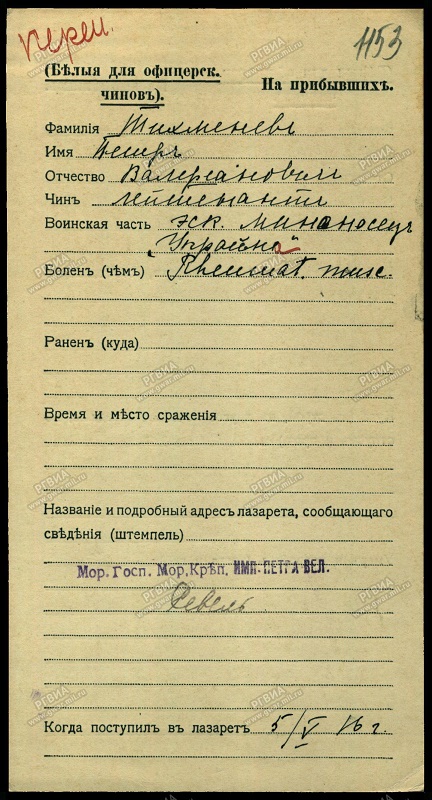 переш.
1153
(Бѣлыя для офицерск. чиновъ).
На прибывшихъ.
Фамилія Тихменевъ
Имя Петръ
Отчество Валеріановичъ
Чинъ лейтенантъ
Воинская часть эск. миноносецъ
„Украйна"
Боленъ (чѣмъ) Rheumat. musc.
Раненъ (куда)
Время и мѣсто сраженія
Названіе и подробный адресъ лазарета, сообщающаго
свѣдѣнія (штемпель)
Мор. Госп. Мор. Крѣп. ИМП. ПЕТРА ВЕЛ.
Ревель
Когда поступилъ въ лазаретъ 5/V 16 г.
РГВИА
www.ргвиа.ru